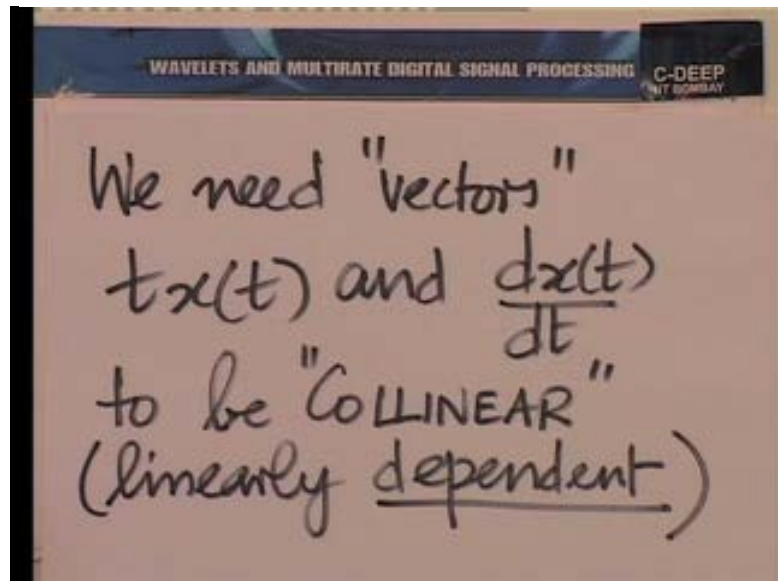 WAVELETS AND MULTIRATE DIGITAL SIGNAL PROCESSING
C-DEEP
IIT BOMBAY
We need "vectors"
tx(t) and dx(t)/dt
to be "COLLINEAR"
(linearly dependent)